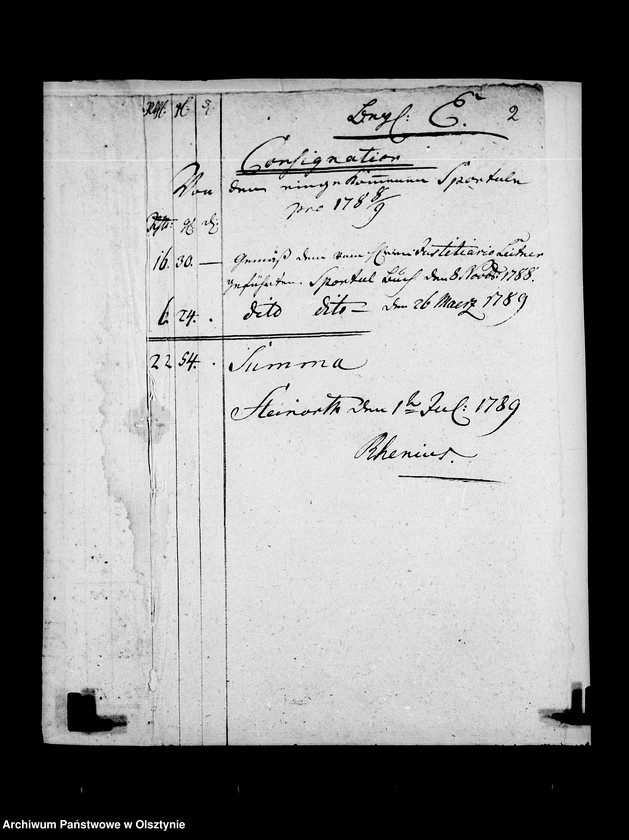 Rthl: gl: ₰
Beyl: C. 2
Consignation
Von denen eingekommenen Sportuln
pro 178 8/9
Rthl: gl: ₰:
16. 30. — Gemäß dem vom Herrn Justitiario Leitner
geführten Sportul Buch den 8. Novbr: 1788.
6. 24. . dito dito — den 26 Maerz 1789
22 54. . Summa
Steinorth den 1ten Jul: 1789
Rhenius.
Archiwum Państwowe w Olsztynie